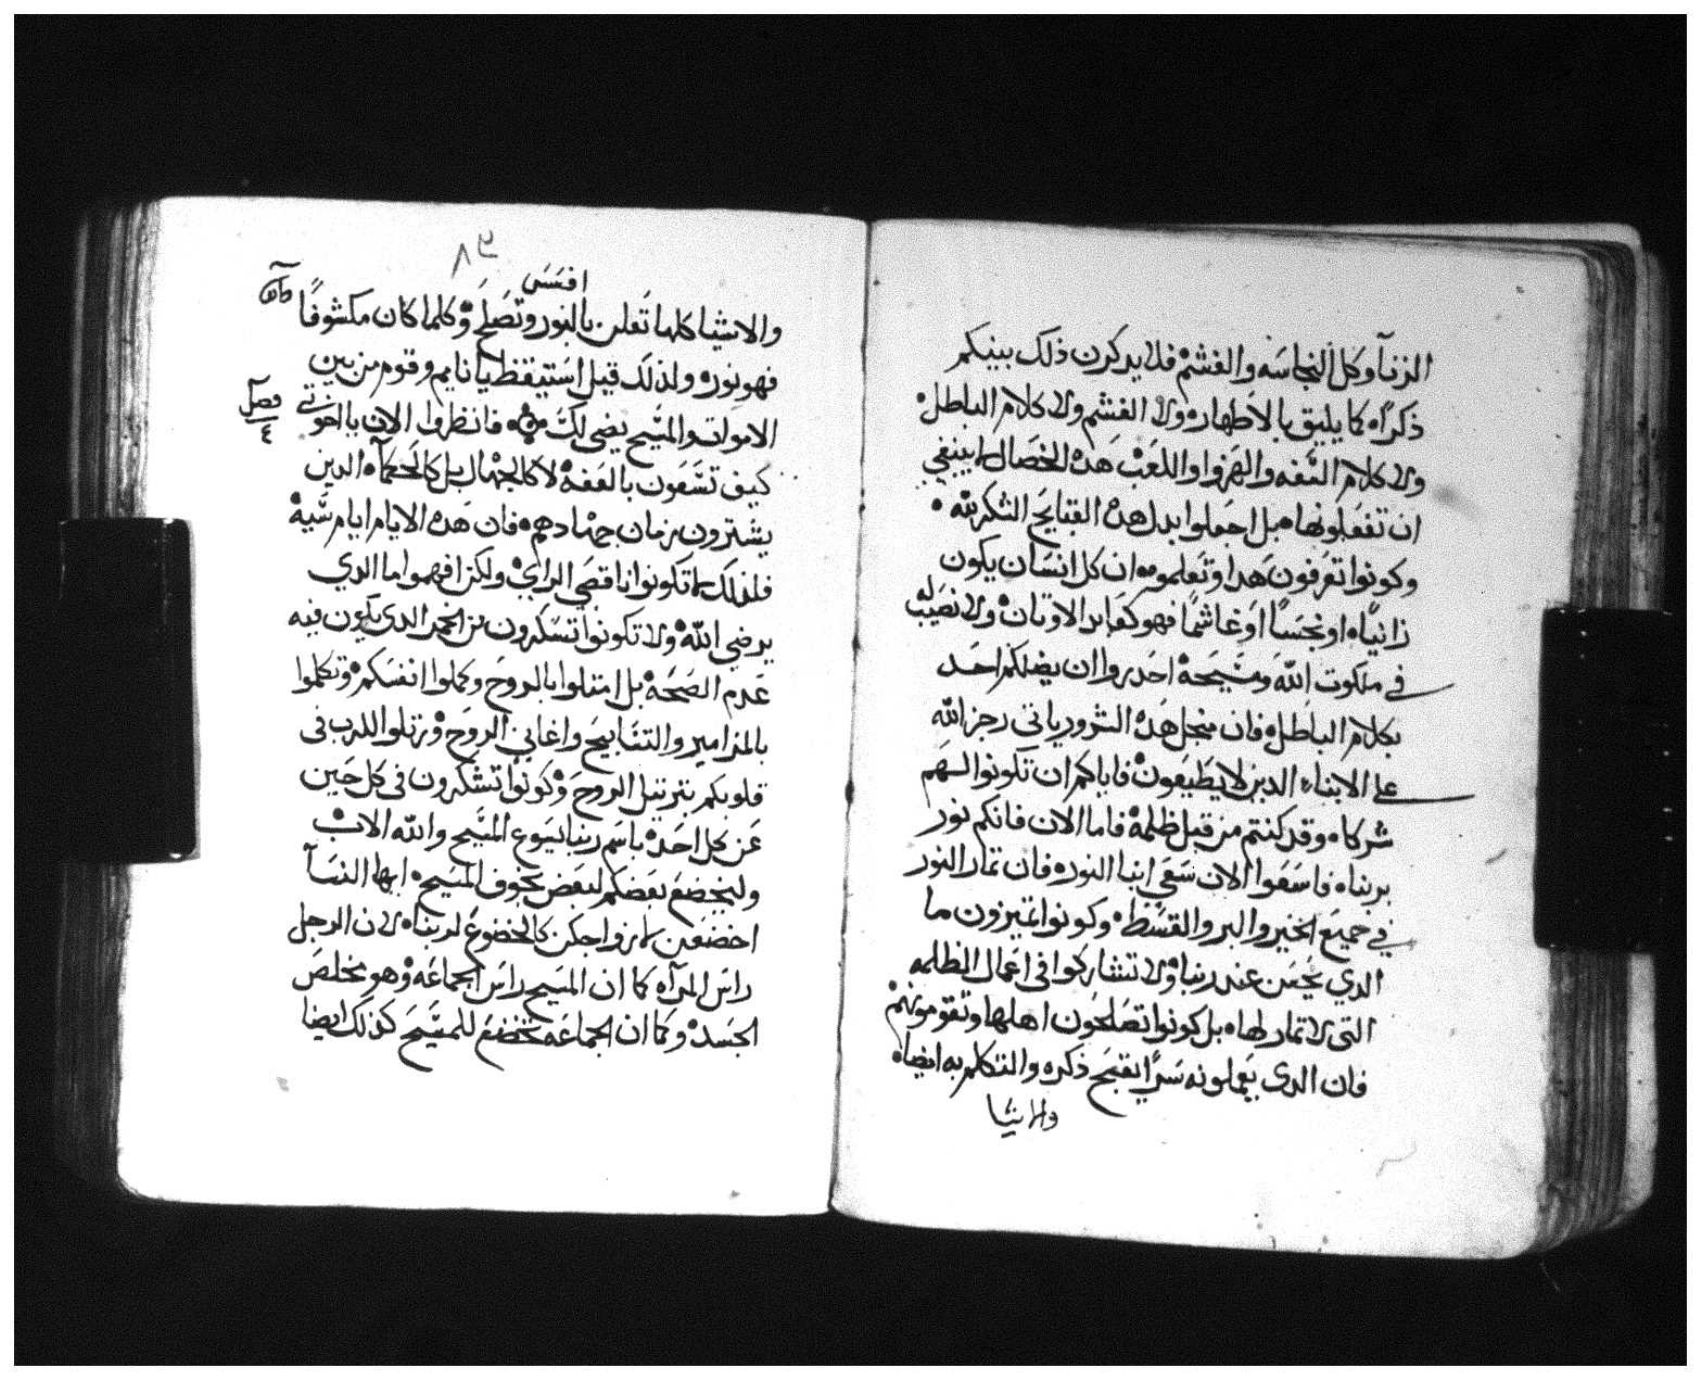 الزنآ وكل النجاسه والغشم فلا يدكرن ذلك بينكم
ذكرًا كما يليق بالاطهار ولا الغشم ولا كلام الباطل
ولا كلام السَّفه والهزوا واللعب هده الخصال لا ينبغي
ان تفعلونها بل اجعلوا بدل هده القبايح الشكر لله
وكونوا تعرفون هدا وتعلموه ان كل انسان يكون
زانيًا او نجسًا او غاشمًا فهو كعابد الاوتان ولا نصيب له
في ملكوت الله ومسيحه احدروا ان يضلكم احد
بكلام الباطل فان منجل هده الشرور ياتي رجز الله
على الابناء الدين لا يطيعون فاياكم ان تكونوا لهم
شركاه وقد كنتم من قبل ظلمة فاما الان فانكم نور
بربنا فاسعوا الان سعي ابنا النور فان تمار النور
في جميع الخير والبر والقسط وكونوا تميزون ما
الدي يحسن عند ربنا ولا تشاركوا في اعمال الظلمه
التى لا تمار لها بل كونوا تصلحون اهلها وتقومونهم
فان الدى يعملونه سرًا يقبح ذكره والتكلم به ايضا
والاشيا
٨٣
افسس
والاشيا كلها تعلن بالنور وتصلح وكلما كان مكشوفًا
فهو نور ولذلك قيل استيقظ يا نايم وقوم من بين
الاموات والمسيح يضى لك فانظروا الان يا اخوتي
فصل
٤
كيف تسعون بالعفة لا كالجهال بل كالحكمآ الدين
يشترون زمان جهادهم فان هده الايام ايام سية
فلذلك لا تكونوا ناقصي الراي ولكن افهموا ما الدي
يرضي الله ولا تكونوا تسكرون من الخمر الدى يكون فيه
عدم الصحة بل امتلوا بالروح وكملوا انفسكم وتكلموا
بالمزامير والتسابيح واغاني الروح ورتلوا للرب في
قلوبكم بترتيل الروح وكونوا تشكرون في كل حين
عن كل احد باسم ربنا يسوع المسيح والله الاب
وليخضع بعضكم لبعض بخوف المسيح ايها النسآ
اخضعن لازواجكن كالخضوع لربنا لان الرجل
راس المرآه كما ان المسيح راس الجماعه وهو مخلص
الجسد وكما ان الجماعه تخضع للمسيح كذلك ايضا